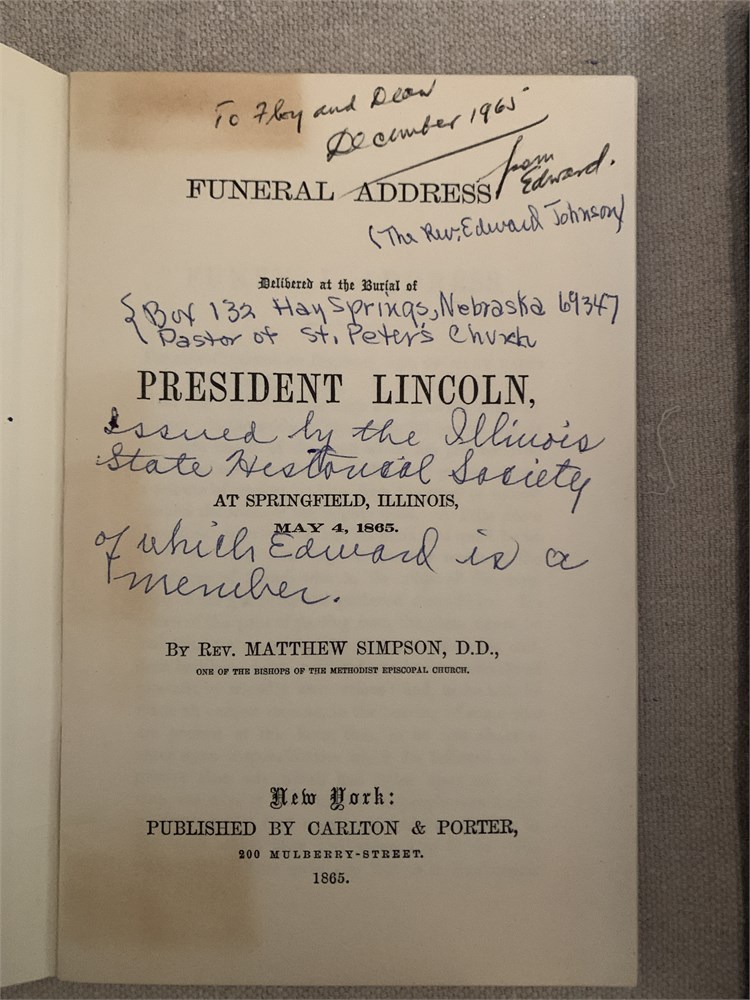 To Floy and Dean
December 1965
from
Edward.
FUNERAL ADDRESS
(The Rev. Edward Johnson)
Delivered at the Burial of
{Box 132 Hay Springs, Nebraska 69347
Pastor of St. Peter's Church
PRESIDENT LINCOLN,
Issued by the Illinois
State Historical Society
AT SPRINGFIELD, ILLINOIS,
MAY 4, 1865.
of which Edward is a
member.
BY REV. MATTHEW SIMPSON, D.D.,
ONE OF THE BISHOPS OF THE METHODIST EPISCOPAL CHURCH.
New York:
PUBLISHED BY CARLTON & PORTER,
200 MULBERRY-STREET.
1865.